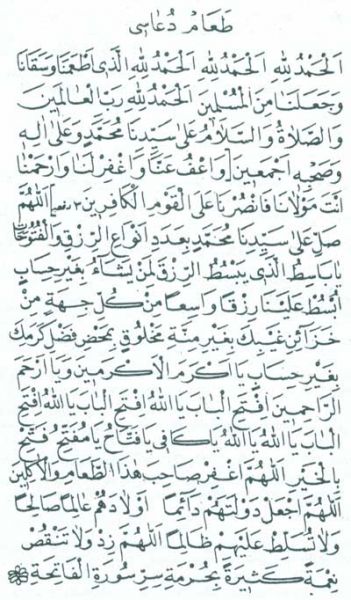 طَعَامْ دُعَاسِى
اَلْحَمْدُ لِلّٰهِ اَلْحَمْدُ لِلّٰهِ اَلْحَمْدُ لِلّٰهِ الَّذِى اَطْعَمَنَا وَسَقَانَا
وَجَعَلَنَا مِنَ الْمُسْلِمِينَ اَلْحَمْدُ لِلّٰهِ رَبِّ الْعَالَمِينَ
وَالصَّلَاةُ وَالسَّلَامُ عَلٰى سَيِّدِنَا مُحَمَّدٍ وَعَلٰى اٰلِهِ
وَصَحْبِهِ اَجْمَعِينَ [وَاعْفُ عَنَّا وَاغْفِرْ لَنَا وَارْحَمْنَا
اَنْتَ مَوْلَانَا فَانْصُرْنَا عَلَى الْقَوْمِ الْكَافِرِينَ ٣ دفعه] اَللّٰهُمَّ
صَلِّ عَلٰى سَيِّدِنَا مُحَمَّدٍ بِعَدَدِ اَنْوَاعِ الرِّزْقِ وَالْفُتُوحَاتِ
يَا بَاسِطُ الَّذِى يَبْسُطُ الرِّزْقَ لِمَنْ يَشَاءُ بِغَيْرِ حِسَابٍ
اُبْسُطْ عَلَيْنَا رِزْقًا وَاسِعًا مِنْ كُلِّ جِهَةٍ مِنْ
خَزَائِنِ غَيْبِكَ بِغَيْرِ مِنَّةِ مَخْلُوقٍ بِمَحْضِ فَضْلِ كَرَمِكَ
بِغَيْرِ حِسَابٍ يَا اَكْرَمَ الْاَكْرَمِينَ وَيَا اَرْحَمَ
الرَّاحِمِينَ اِفْتَحِ الْبَابَ يَا اَللّٰهُ اِفْتَحِ الْبَابَ يَا اَللّٰهُ اِفْتَحِ
الْبَابَ يَا اَللّٰهُ يَا اَللّٰهُ يَا كَافِى يَا فَتَّاحُ يَا مُفَتِّحُ فَتِّحْ
بِالْخَيْرِ اَللّٰهُمَّ اغْفِرْ صَاحِبَ هٰذَا الطَّعَامِ وَالْاٰكِلِينَ
اَللّٰهُمَّ اجْعَلْ دَوْلَتَهُمْ دَائِمًا اَوْلَادَهُمْ عَالِمًا صَالِحًا
وَلَا تُسَلِّطْ عَلَيْهِمْ ظَالِمًا اَللّٰهُمَّ زِدْ وَلَا تَنْقُصْ
نِعْمَةً كَثِيرَةً بِحُرْمَةِ سِرِّ سُورَةِ الْفَاتِحَةِ